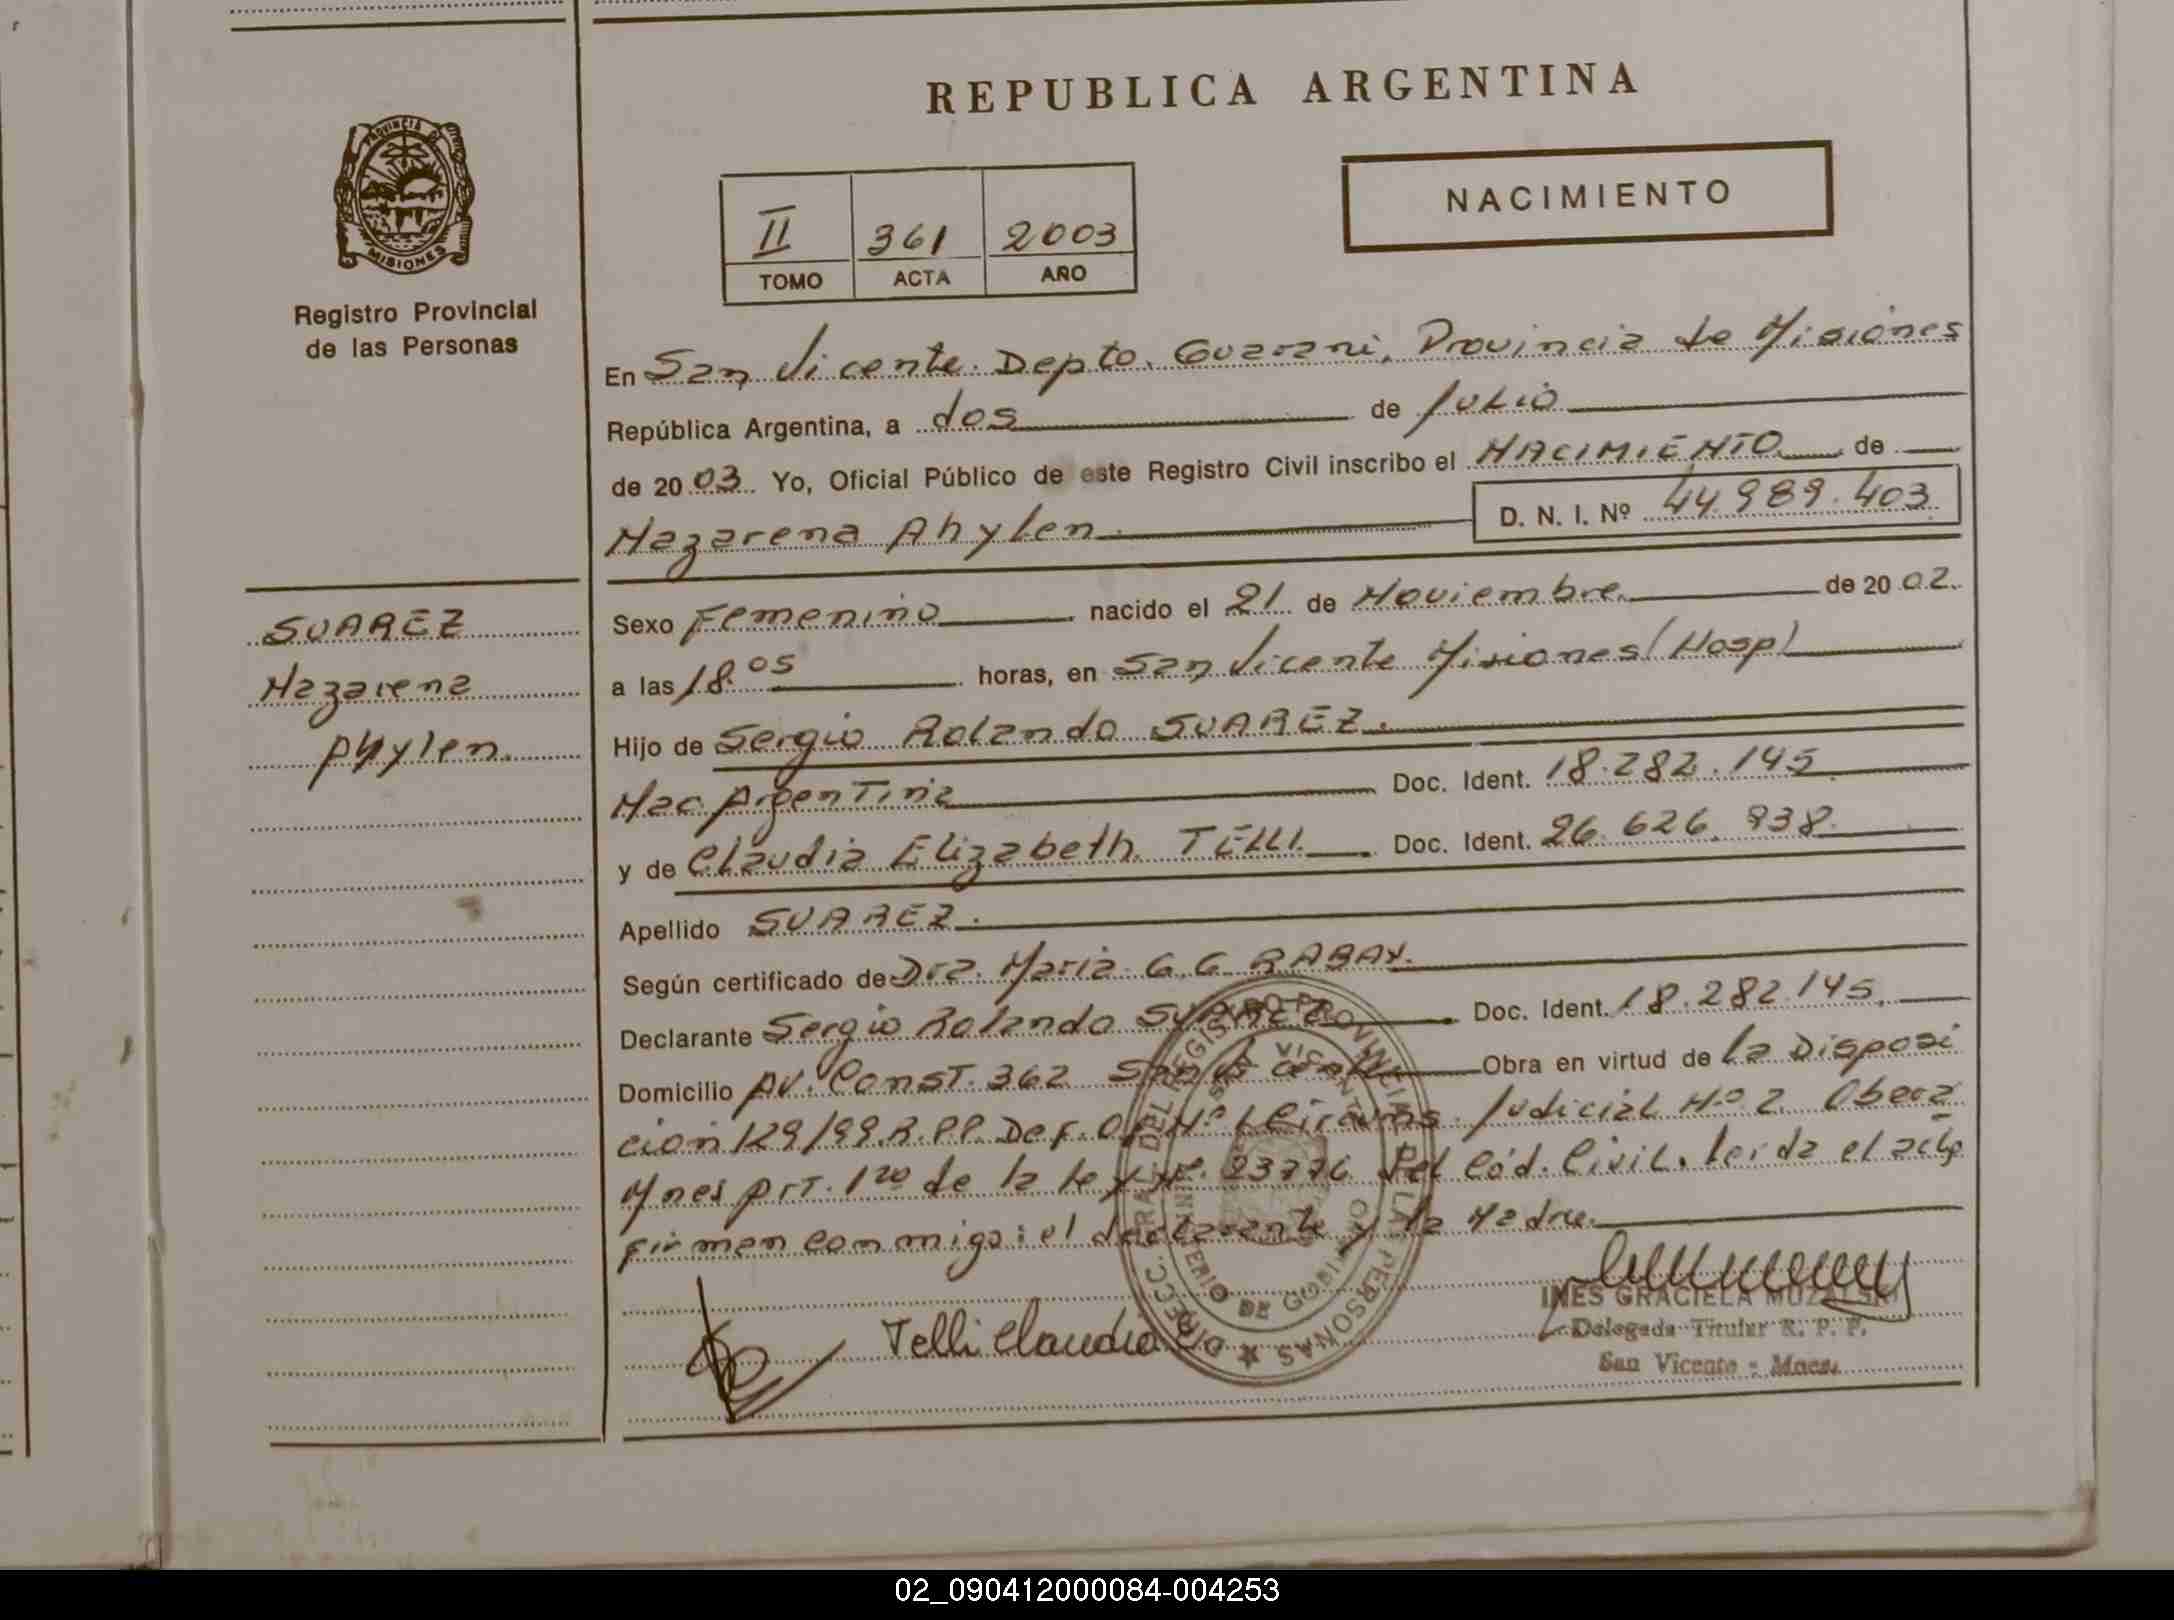 REPUBLICA ARGENTINA
PROVINCIA DE
MISIONES
Registro Provincial
de las Personas
II 361 2003
TOMO ACTA AÑO
NACIMIENTO
En San Vicente. Depto. Guarani, Provincia de Misiones
República Argentina, a dos de Julio
de 2003. Yo, Oficial Público de este Registro Civil inscribo el NACIMIENTO de
Nazarena Ahylen D. N. I. Nº 44.989.403
SUAREZ
Nazarena
Ahylen.
Sexo Femenino nacido el 21 de Noviembre de 2002.
a las 18.05 horas, en San Vicente Misiones (Hosp)
Hijo de Sergio Rolando SUAREZ.
Nac. Argentina Doc. Ident. 18.282.145
y de Claudia Elizabeth TELLI Doc. Ident. 26.626.938
Apellido SUAREZ.
Según certificado de Dra. Maria G.G. RABAY.
Declarante Sergio Rolando SUAREZ Doc. Ident. 18.282.145.
Domicilio Av. Const. 362 San Vicente Obra en virtud de la Disposi
cion 129/99.R.PP. Def. Of. Nº 1 Circuns. Judicial Nº 2 Obera
Mnes Art. 1ro de la Ley Nº 23776 del Cód. Civil. leida el acta
firman conmigo: el declarante y la Madre.
DIRECC. GRAL. DEL REGISTRO PROVINCIAL DE LAS PERSONAS
SAN VICENTE
MINISTERIO DE GOBIERNO
Telli Claudia
INES GRACIELA MUZALSKI
Delegada Titular R. P. P.
San Vicente - Mnes.
02_090412000084-004253